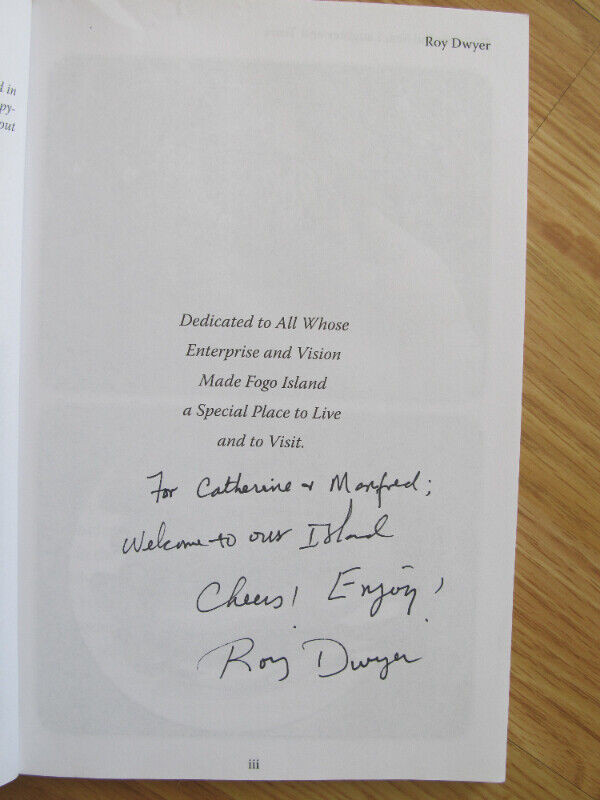 Roy Dwyer
d in
py-
out
Dedicated to All Whose
Enterprise and Vision
Made Fogo Island
a Special Place to Live
and to Visit.
For Catherine + Manfred;
Welcome to our Island
Cheers! Enjoy!
Roy Dwyer
iii